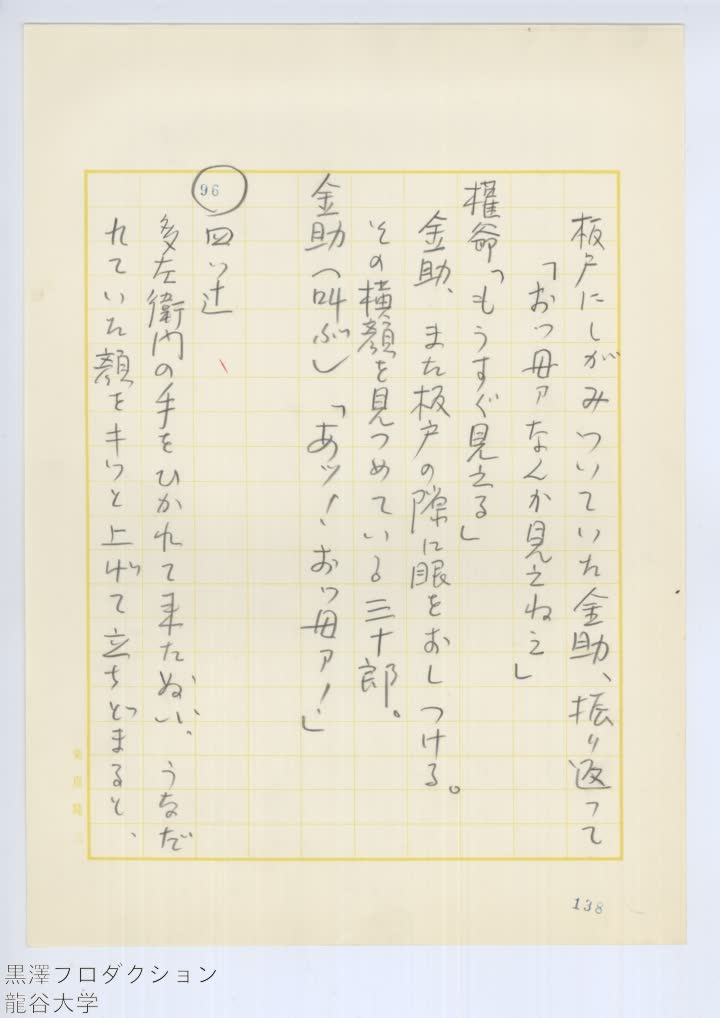 板戸にしがみついていた金助、振り返って
「おっ母ァなんか見えねえ」
権爺「もうすぐ見える」
金助、また板戸の隙に眼をおしつける。
その横顔を見つめている三十郎。
金助（叫ぶ）「あッ！おっ母ァ！」
96
四ッ辻
多左衛門の手をひかれて来たぬい、うなだ
れていた顔をキッと上げて立ちどまると、
138
黒澤フロダクション
龍谷大学